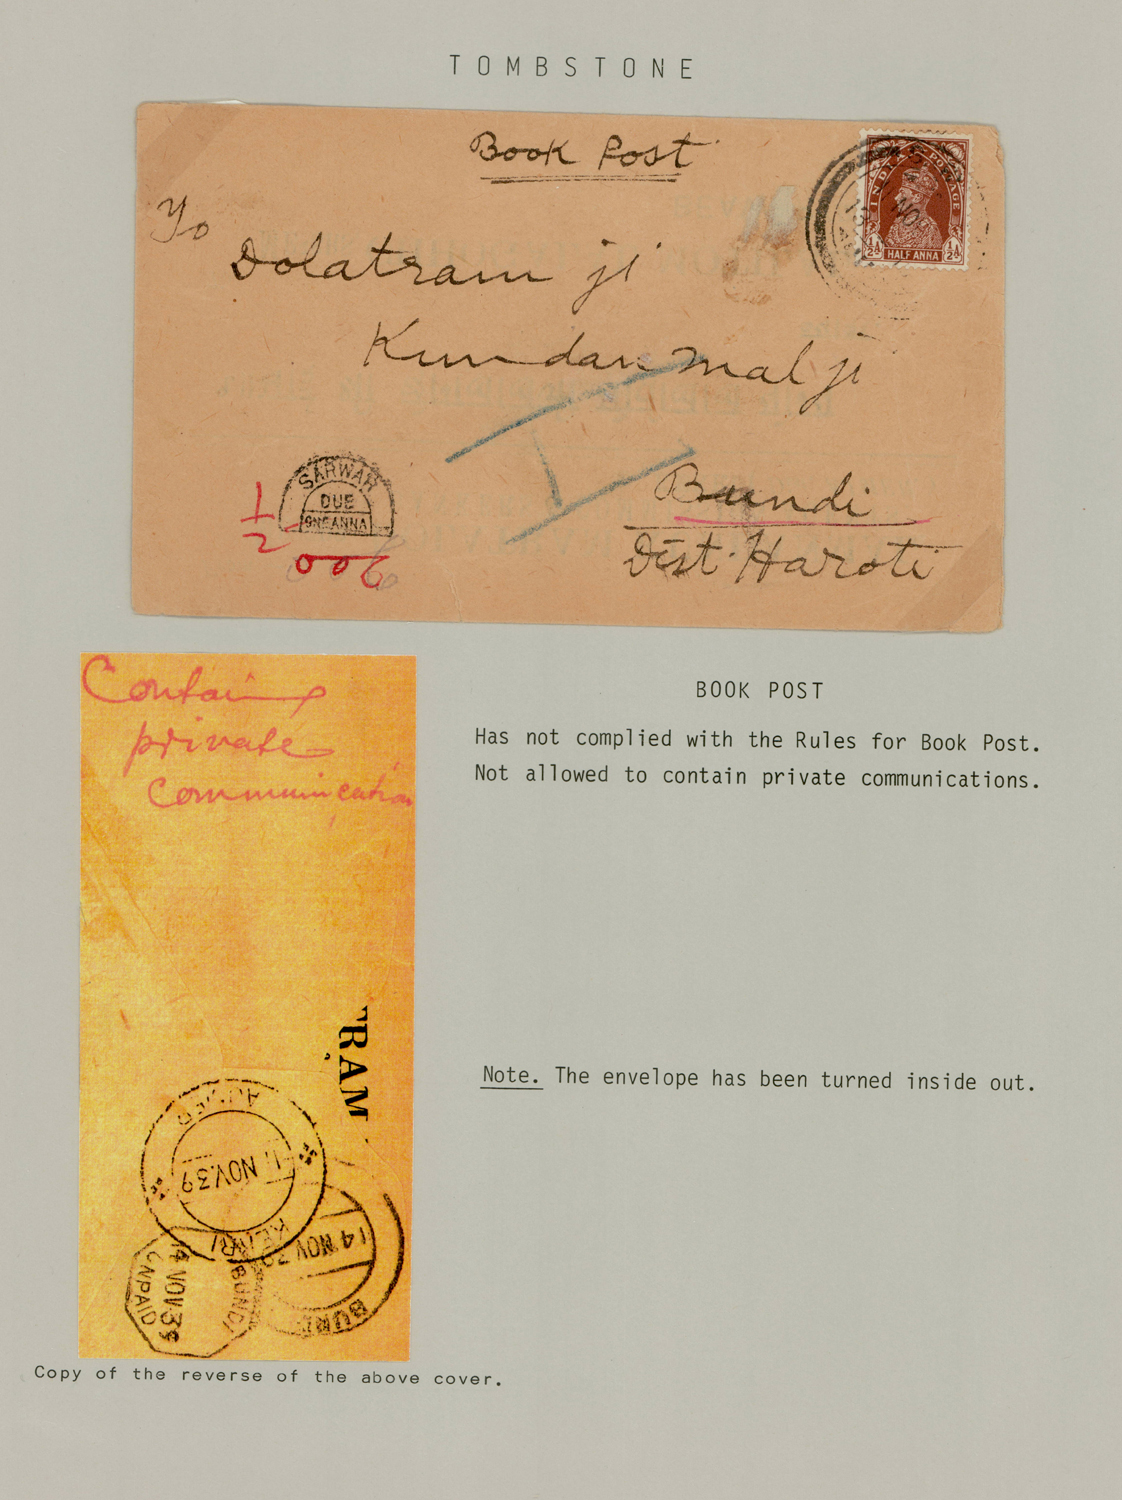 TOMBSTONE
Book Post
To
Dolatram ji
Kundanmal ji
Bundi
Dist. Haroti
INDIA POSTAGE
½A ½A
HALF ANNA
NO
13
SARWAR
DUE
ONE ANNA
1/2
Contain
private
communication
RAM
11 NOV.39
KEKRI
14 NOV 39
BUNDI
14 NOV.39
UNPAID
BUNDI
BOOK POST
Has not complied with the Rules for Book Post.
Not allowed to contain private communications.
Note. The envelope has been turned inside out.
Copy of the reverse of the above cover.